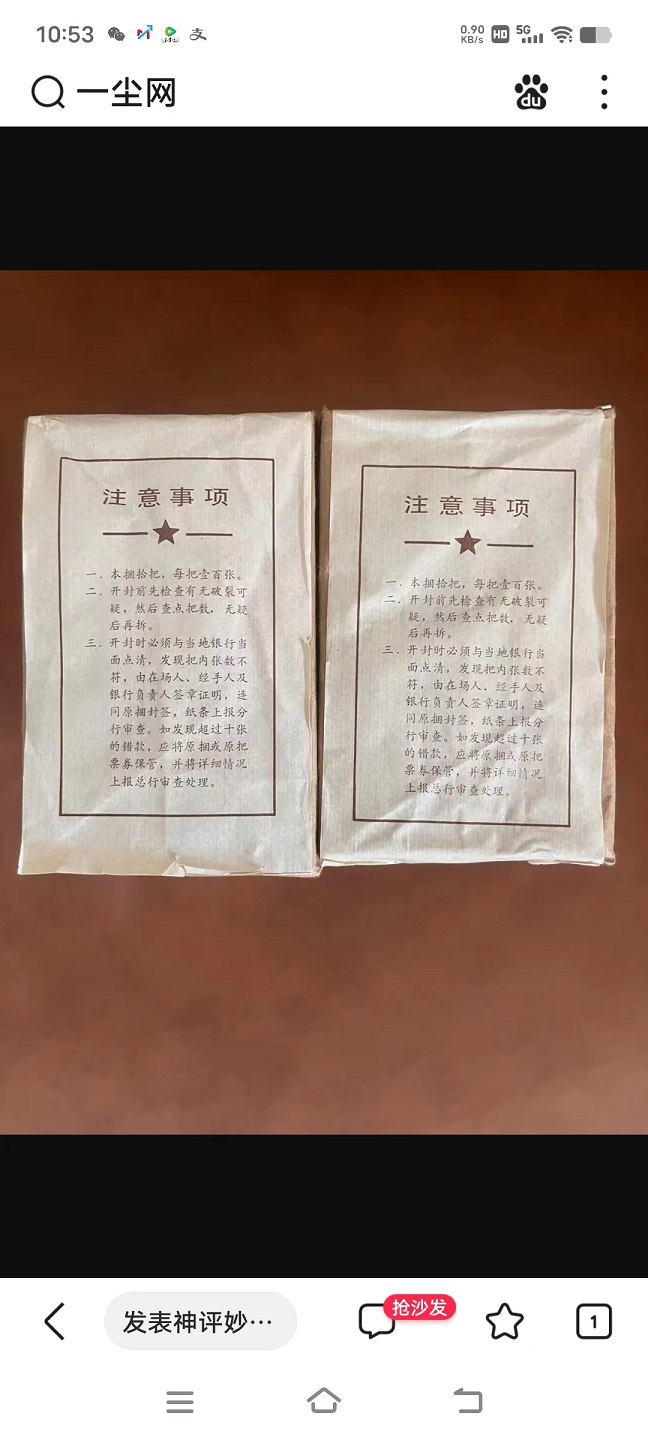 10:53
支
0.90
KB/s
HD
5G
一尘网
du
注意事项
一. 本捆拾把，每把壹百张。
二. 开封前先检查有无破裂可
疑，然后查点把数，无疑
后再拆。
三. 开封时必须与当地银行当
面点清，发现把内张数不
符，由在场人、经手人及
银行负责人签章证明，连
同原捆封签，纸条上报分
行审查。如发现超过十张
的错款，应将原捆或原把
票券保管，并将详细情况
上报总行审查处理。
注意事项
一. 本捆拾把，每把壹百张。
二. 开封前先检查有无破裂可
疑，然后查点把数，无疑
后再拆。
三. 开封时必须与当地银行当
面点清，发现把内张数不
符，由在场人、经手人及
银行负责人签章证明，连
同原捆封签，纸条上报分
行审查。如发现超过十张
的错款，应将原捆或原把
票券保管，并将详细情况
上报总行审查处理。
发表神评妙…
抢沙发
1